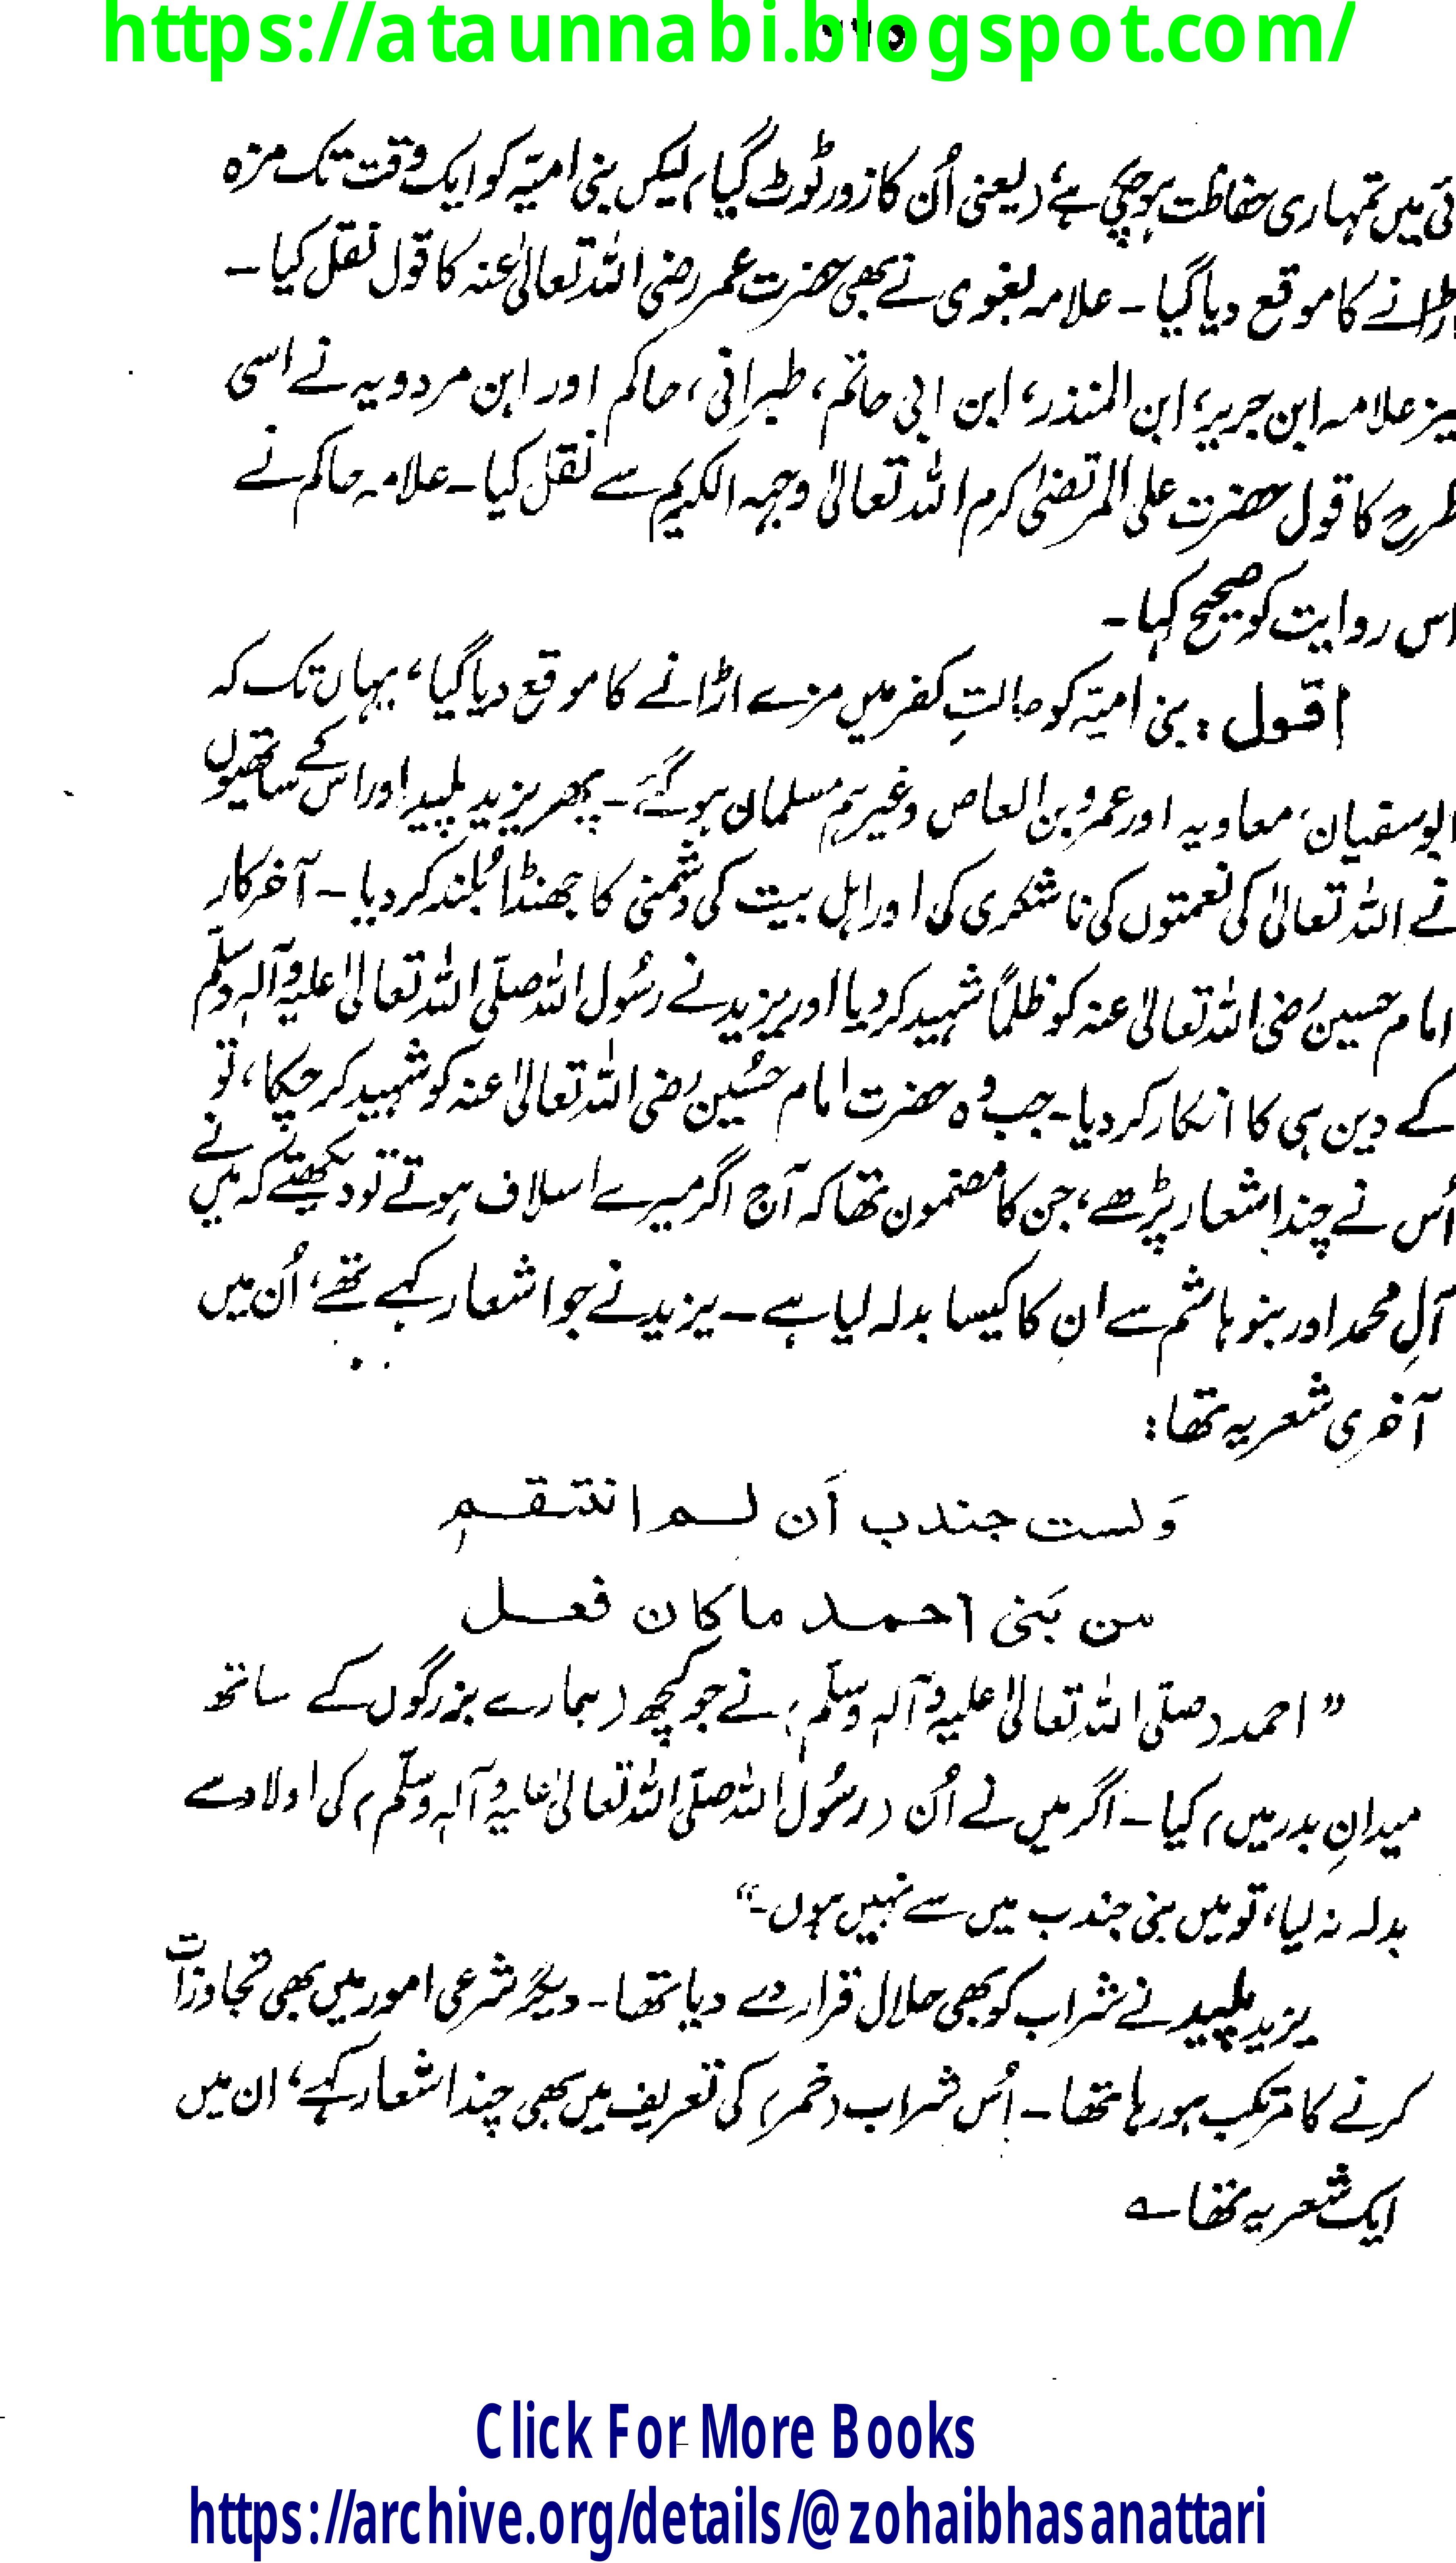 https://ataunnabi.blogspot.com/
ئی میں تمہاری حفاظت ہو چکی ہے، (یعنی اُن کا زور ٹوٹ گیا) لیکن بنی امیّہ کو ایک وقت تک مزہ
اڑانے کا موقع دیا گیا ۔ علامہ بغوی نے بھی حضرت عمر رضی اللہ تعالیٰ عنہ کا قول نقل کیا ۔
نیز علامہ ابن جریر، ابن المنذر، ابن ابی حاتم، طبرانی، حاکم اور ابن مردویہ نے اسی
طرح کا قول حضرت علی المرتضیٰ کرم اللہ تعالیٰ وجہہ الکریم سے نقل کیا ۔ علامہ حاکم نے
اس روایت کو صحیح کہا ۔
اقول : بنی امیّہ کو حالتِ کفر میں مزے اڑانے کا موقع دیا گیا، یہاں تک کہ
ابوسفیان، معاویہ اور عمرو بن العاص وغیرہم مسلمان ہو گئے ۔ پھر یزید پلید اور اس کے ساتھیوں
نے اللہ تعالیٰ کی نعمتوں کی ناشکری کی اور اہل بیت کی دُشمنی کا جھنڈا بُلند کر دیا ۔ آخر کار
امام حسین رضی اللہ تعالیٰ عنہ کو ظلمًا شہید کر دیا اور یزید نے رسُول اللہ صلّی اللہ تعالیٰ علیہ وآلہٖ وسلّم
کے دین ہی کا انکار کر دیا ۔ جب وہ حضرت امام حُسین رضی اللہ تعالیٰ عنہ کو شہید کر چکا، تو
اُس نے چند اشعار پڑھے، جن کا مضمون تھا کہ آج اگر میرے اسلاف ہوتے تو دیکھتے کہ میں نے
آلِ محمد اور بنو ہاشم سے ان کا کیسا بدلہ لیا ہے ۔ یزید نے جو اشعار کہے تھے، اُن میں
آخری شعر یہ تھا :
وَلست جندب اَن لـم انتقـم
من بَنی احمـد ماکان فعـل
” احمد (صلّی اللہ تعالیٰ علیہ وآلہٖ وسلّم) نے جو کچھ (ہمارے بزرگوں کے ساتھ
میدانِ بدر میں) کیا ۔ اگر میں نے اُن (رسُول اللہ صلّی اللہ تعالیٰ علیہ وآلہٖ وسلّم) کی اولاد سے
بدلہ نہ لیا، تو میں بنی جندب میں سے نہیں ہوں ۔“
یزید پلید نے شراب کو بھی حلال قرار دے دیا تھا ۔ دیگر شرعی امور میں بھی تجاوزات
کرنے کا مرتکب ہو رہا تھا ۔ اُس شراب (خمر) کی تعریف میں بھی چند اشعار کہے، ان میں
ایک شعر یہ تھا ؎
Click For More Books
https://archive.org/details/@zohaibhasanattari